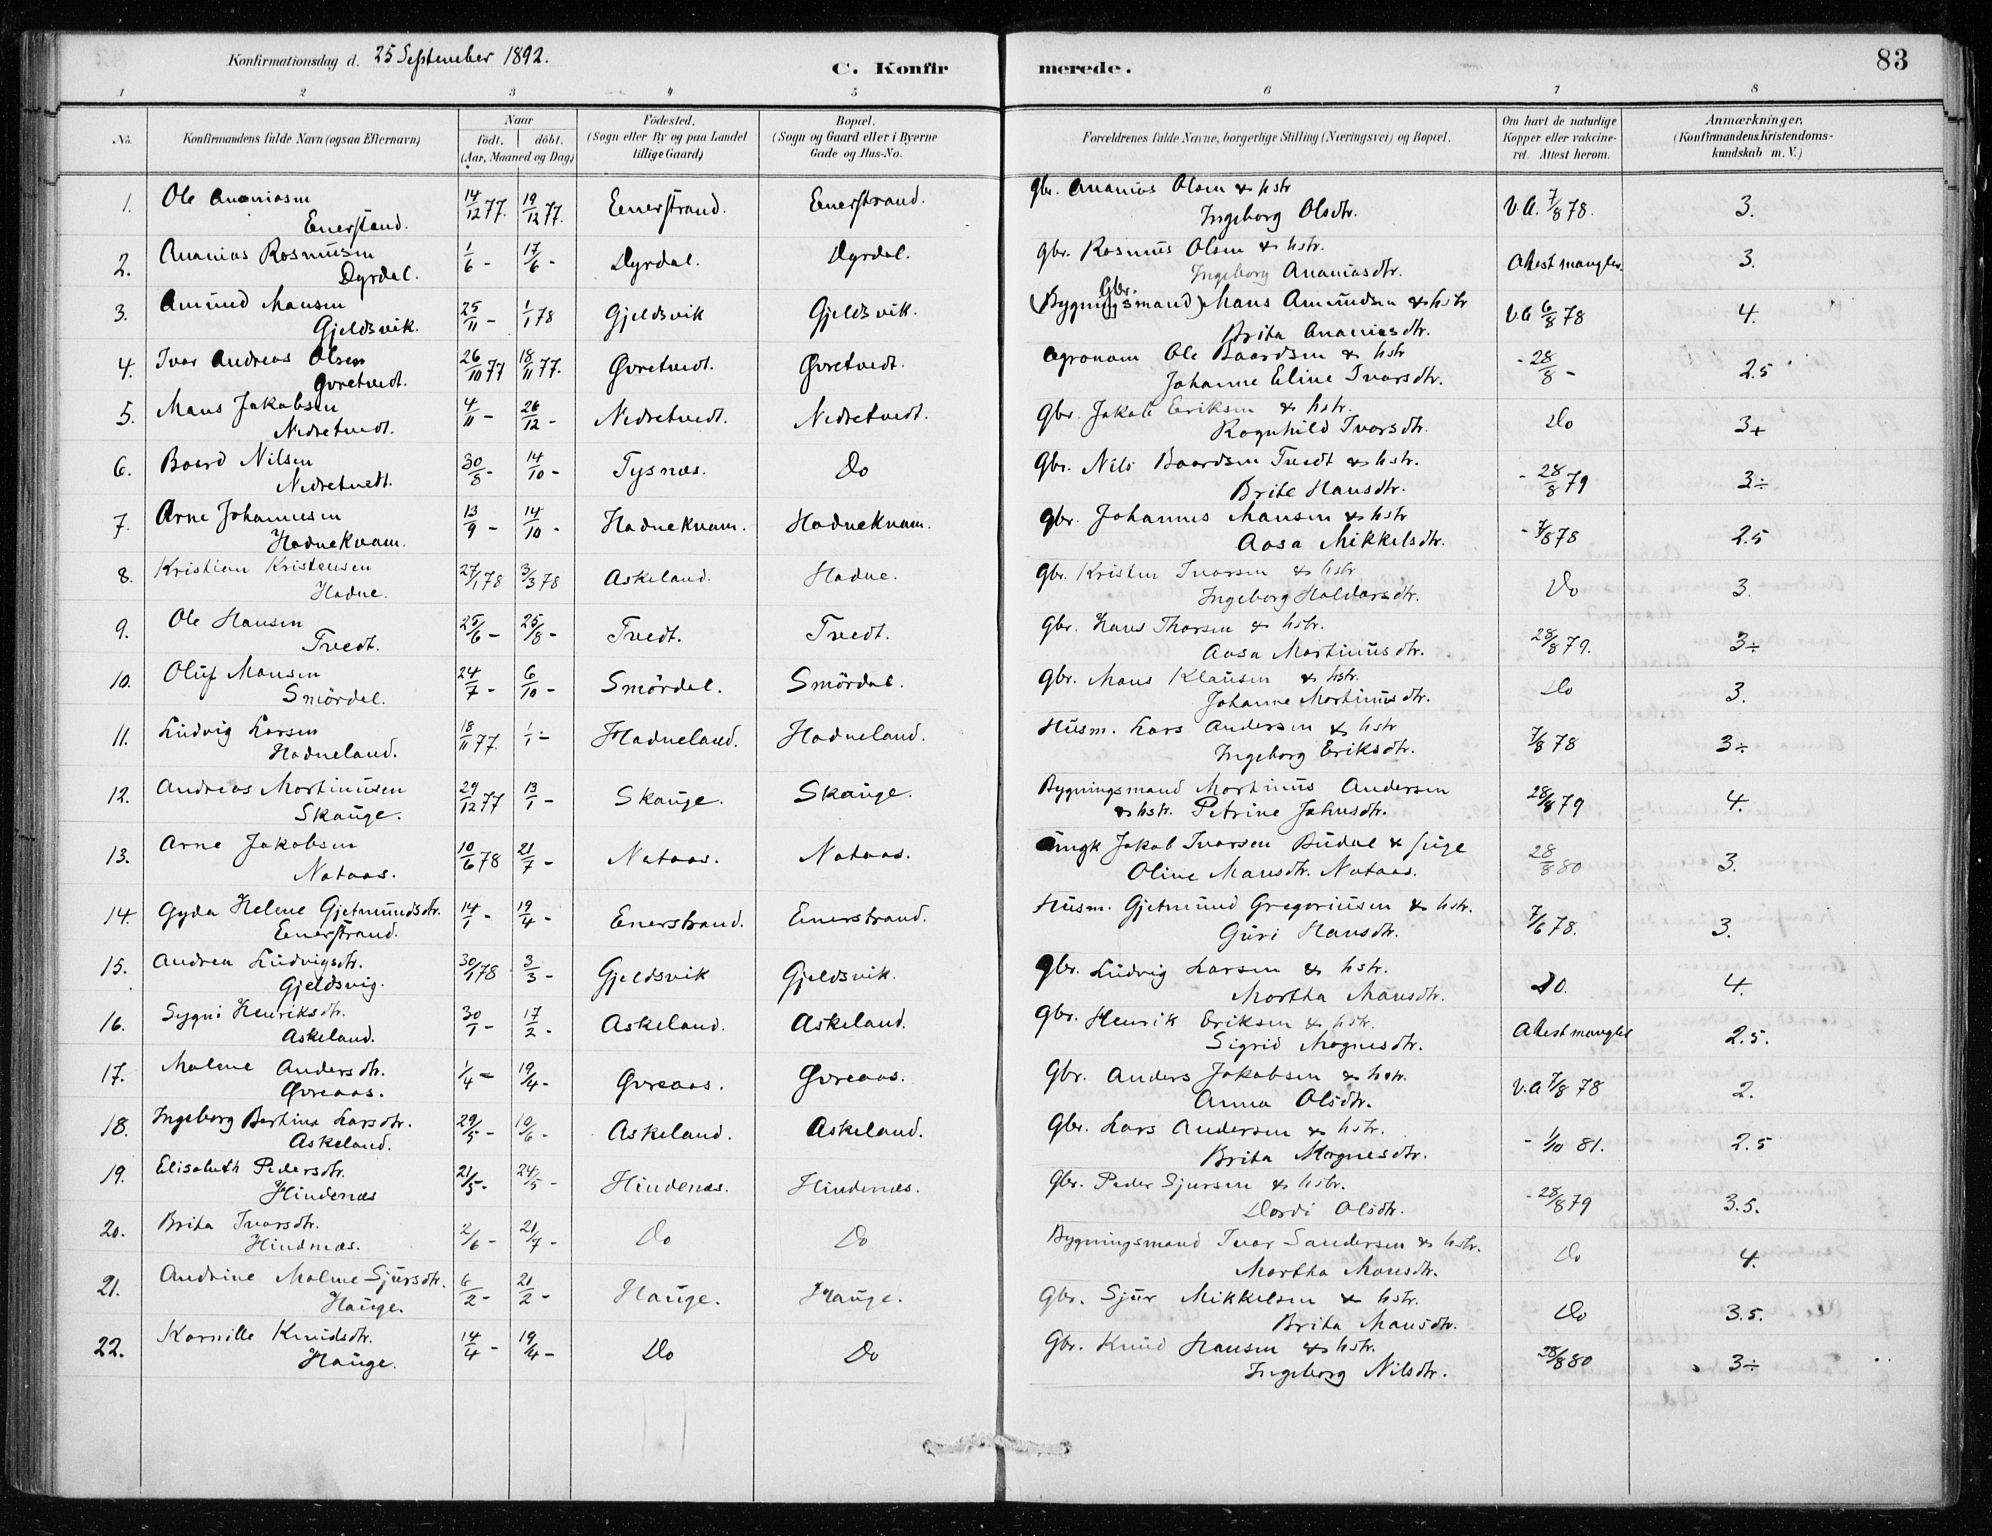 Konfirmationsdag d. 25 September 1892.
C. Konfirmerede.
83
1 2 3 4 5 6 7 8
No. Konfirmandens fulde Navn (ogsaa Efternavn) Naar födt. döbt. (Aar, Maaned og Dag) Födested. (Sogn eller By og paa Landet tillige Gaard) Bopæl. (Sogn og Gaard eller i Byerne Gade og Hus-No. Forældrenes fulde Navne, borgerlige Stilling (Næringsvei) og Bopæl. Om havt de naturlige Kopper eller vakcineret. Attest herom. Anmærkninger. (Konfirmandens Kristendomskundskab m. V.)
1. Ole Ananiasen 14/12 77. 19/12 77. Enerstrand. Enerstrand. Gbr. Ananias Olsen & hstr V.A. 7/8 78. 3.
Enerstand. Ingeborg Olsdtr.
2. Ananias Rasmusen 1/6 - 17/6 - Dyrdal. Dyrdal. Gbr. Rasmus Olsen & hstr. Attest mangler. 3.
Dyrdal. Ingeborg Ananiasdtr.
3. Amund Mansen 25/11 - 1/1 78 Gjeldsvik Gjeldsvik. (Bygningsmand) Gbr. Mans Amundsen & hstr V.A 6/8 78 4.
Gjeldsvik. Brita Ananiasdtr.
4. Ivar Andreas Olsen 26/10 77 18/11 77. Øvretvedt. Øvretvedt. Agronom Ole Baardsen & hstr - 28/8 - 2.5
Øvretvedt. Johanne Eline Ivarsdtr.
5. Mans Jakobsen 4/11 - 26/12 - Nedretvedt. Nedretvedt. Gbr. Jakob Eriksen & hstr. Do 3+
Nedretvedt. Ragnhild Ivarsdtr.
6. Baard Nilsen 30/8 - 14/10 - Tysnæs. Do Gbr. Nils Baardsen Tvedt & hstr. - 28/8 79 3÷
Nedretvedt. Brite Hansdtr.
7. Arne Johannesen 13/9 - 14/10 - Hadnekvam. Hadnekvam. Gbr. Johannes Mansen & hstr - 7/8 78 2.5
Hadnekvam. Aasa Mikkelsdtr.
8. Kristian Kristensen 27/1 78 3/3 78 Askeland. Hadne. Gbr. Kristen Ivarsen & hstr Do 3.
Hadne. Ingeborg Haldorsdtr.
9. Ole Hansen 25/6 - 25/8 - Tvedt. Tvedt. Gbr. Hans Thorsen & hstr. 28/8 79. 3÷
Tvedt. Aasa Martinusdtr.
10. Oluf Mansen 24/7 - 6/10 - Smördal. Smördal. Gbr. Mans Klausen & hstr. Do 3.
Smördal. Johanne Martinusdtr.
11. Ludvig Larsen 18/11 77. 1/1 - Hadneland. Hadneland. Husm. Lars Andersen & hstr 7/8 78 3÷
Hadneland. Ingeborg Eriksdtr.
12. Andreas Martinusen 29/12 77 13/1 - Skauge. Skauge. Bygningsmand Martinus Andersen 28/8 79 4.
Skauge. & hstr. Petrine Johnsdtr.
13. Arne Jakobsen 10/6 78 21/7 - Nataas. Nataas. Ungk Jakob Ivarsen Budal & pige 28/8 80 3.
Nataas. Oline Mansdtr. Nataas.
14. Gyda Helene Gjetmundsdtr. 14/1 - 19/4 - Enerstrand. Enerstrand. Husm. Gjetmund Gregoriusen & hstr. 7/6 78. 3.
Enerstrand. Guri Hansdtr.
15. Andrea Ludvigsdtr. 30/1 78 3/3 - Gjeldsvik Gjeldsvik. Gbr. Ludvig Larsen & hstr. Do. 4.
Gjeldsvig. Martha Mansdtr.
16. Sygni Henriksdtr. 30/1 - 17/2 - Askeland. Askeland. Gbr. Henrik Eriksen & hstr. Attest mangler 2.5.
Askeland. Sigrid Magnesdtr.
17. Malene Andersdtr. 1/4 - 19/4 - Øvreaas. Øvreaas. Gbr. Anders Jakobsen & hstr. V.A 7/8 78 2.
Øvreaas. Anna Olsdtr.
18. Ingeborg Bertina Larsdtr. 29/5 - 10/6 - Askeland. Askeland. Gbr. Lars Andersen & hstr. - 1/10 81. 2.5
Askeland. Brita Magnesdtr.
19. Elisabeth Pedersdtr. 21/5 - 24/5 - Hindenæs. Hindenæs. Gbr. Peder Sjursen & hstr. - 28/8 79 3.5.
Hindenæs Dordi Olsdtr.
20. Brita Ivarsdtr. 2/6 - 21/7 - Do Do Bygningsmand Ivar Sandersen & hstr. Do 4.
Hindnæs. Martha Mansdtr.
21. Andrine Malene Sjursdtr. 6/2 - 21/2 - Hauge. Hauge. Gbr. Sjur Mikkelsen & hstr. Do 3.5.
Hauge. Brita Mansdtr.
22. Kornille Knudsdtr. 14/4 - 19/4 - Do Do Gbr. Knud Hansen & hstr. 28/8 80 3÷
Hauge. Ingeborg Nilsdtr.